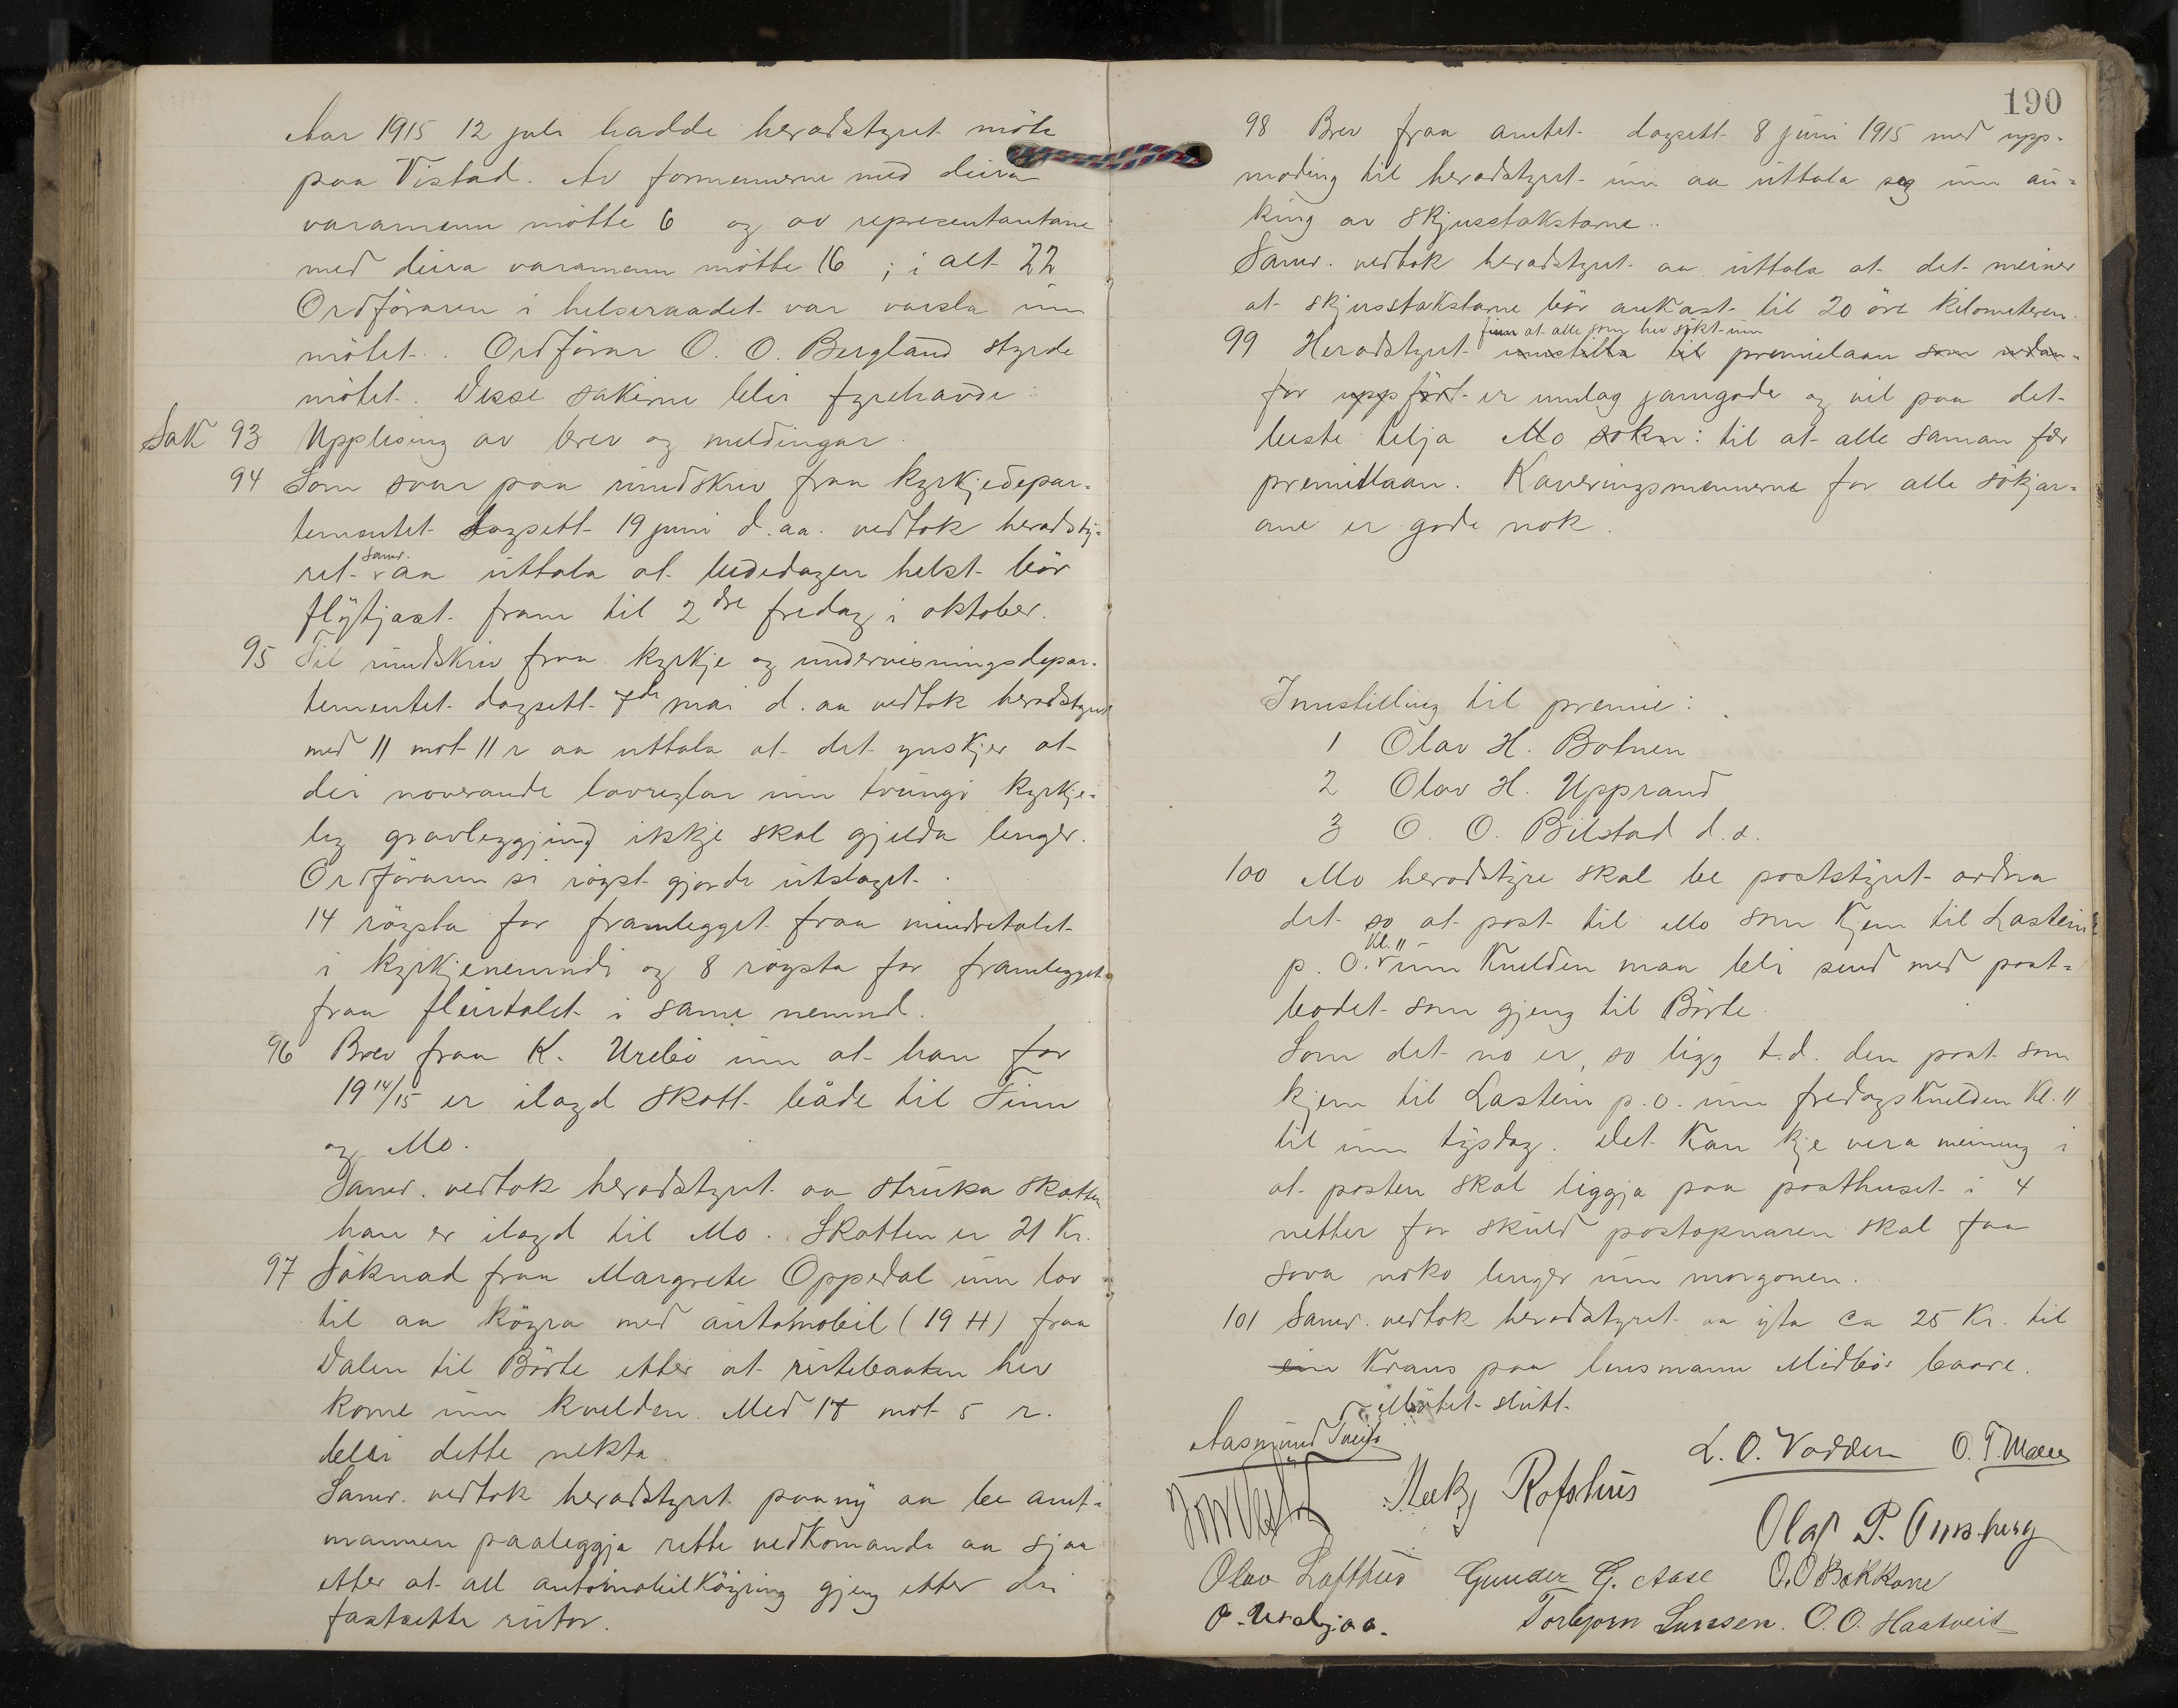 Aar 1915 12 juli hadde heradstyret möte
paa Vistad. Av formennerne med deira
varamenn mötte 6 og av representantane
med deira varamenn mötte 16 ; i alt 22
Ordföraren i helseraadet var varsla um
mötet. Ordförar O. O. Bergland styrde
mötet. Desse sakirne blei fyrehavde:
Sak 93 Upplesing av brev og meldingar.
94 Som svar paa rundskriv fraa kyrkjedepar-
tementet dagsett 19 juni d. aa. vedtok heradsty-
ret samr. aa uttala at bededagen helst bör
flytjast fram til 2dre fredag i oktober.
95 Til rundskriv fraa kyrkje og undervisningsdepar-
tementet dagsett 7de mai d. aa vedtok heradstyret
med 11 mot 11 r aa uttala at det ynskjer at
dei noverande lovreglar um tvungi kyrkje-
leg gravleggjing ikkje skal gjelda lenger.
Ordföraren si röyst gjorde utslaget.
14 röysta for framlegget fraa mindretalet
i kyrkjenemndi og 8 röysta for framlegget
fraa fleirtalet i same nemnd.
96 Brev fraa K. Urebö um at han for
1914/15 er ilagd skatt både til Tinn
og Mo.
Samr. vedtok heradstyret aa struka skatten
han er ilagd til Mo. Skatten er 21 Kr.
97 Söknad fraa Margrete Oppedal um lov
til aa köyra med automobil (19 H) fraa
Dalen til Börte etter at rutebaaten hev
kome um kvelden. Med 17 mot 5 r.
blei dette nekta.
Samr. vedtok heradstyret paany aa be amt-
mannen paaleggja rette vedkomande aa sjaa
etter at all automobilköyring gjeng etter dei
fastsette rutor.
190
98 Brev fraa amtet dagsett 8 juni 1915 med upp-
moding til heradstyret um aa uttala seg um au-
king av skjusstakstarne..
Samr. vedtok heradstyret aa uttala at det meiner
at skjusstakstarne bör aukast til 20 öre kilometeren.
finn at alle som hev sökt um
99 Heradstyret innstilla til premielaan som utan-
for uppfört er umlag jamgode og vil paa det
beste telja Mo sokn: til at alle saman fær
premielaan. Kaveringsmennerne for alle sökjar-
ane er gode nok.
Innstilling til premie:
1 Olav H. Botnen
2 Olav H. Upprand
3 O. O. Bilstad d.e.
100 Mo heradstyre skal be poststyret ordna
det so at post til Mo som kjem til Lastein
p. O. Kl. 11 um kvelden maa bli send med post-
bodet som gjeng til Börte.
Som det no er, so ligg t.d. den post som
kjem til Lastein p.o. um fredagskvelden Kl. 11
til um tysdag. Det kan kje vera meining i
at posten skal liggja paa posthuset i 4
netter for skuld postopnaren skal faa
sova noko lenger um morgonen.
101 Samr. vedtok heradstyret aa yta ca 25 Kr. til
ein krans paa lensmann Midbö's baare.
Mötet slutt.
Aasmund Tveito
L. O. Vadder O. T. Moen
Rofshus
Olaf P.
Olav Lofthus Gunder G. Aase O. O Bakkane
O. Urabjaa. Torbjorn Larssen. O. O. Haatveit